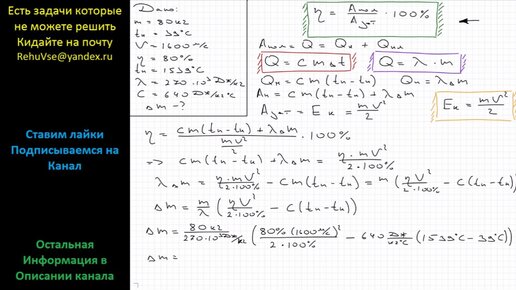 Есть задачи которые
не можете решить
Кидайте на почту
RehuVse@yandex.ru
Ставим лайки
Подписываемся на
Канал
Остальная
Информация в
Описании канала
Дано:
m = 80 кг
tн = 39°C
V = 1600 м/с
η = 80%
tп = 1539°C
λ = 270·10³ Дж/кг
C = 640 Дж/кг°C
Δm - ?
η = Aпол / Aзат · 100%
Aпол = Q = Qн + Qпл
Q = cmΔt Q = λ·m
Qн = cm(tп-tн) Qп = λΔm
Aп = cm(tп-tн) + λΔm
Aзат = Eк = mV²/2 Eк = mV²/2
η = (cm(tп-tн) + λΔm) / (mV²/2) · 100%
=> cm(tп-tн) + λΔm = η·mV² / 2·100%
λΔm = η·mV² / 2·100% - cm(tп-tн) = m(ηV² / 2·100% - c(tп-tн)
Δm = m/λ (ηV² / 2·100% - c(tп-tн))
Δm = 80кг / 270·10³ Дж/кг (80%(1600м/с)² / 2·100% - 640 Дж/кг°C (1539°C-39°C)
Δm =